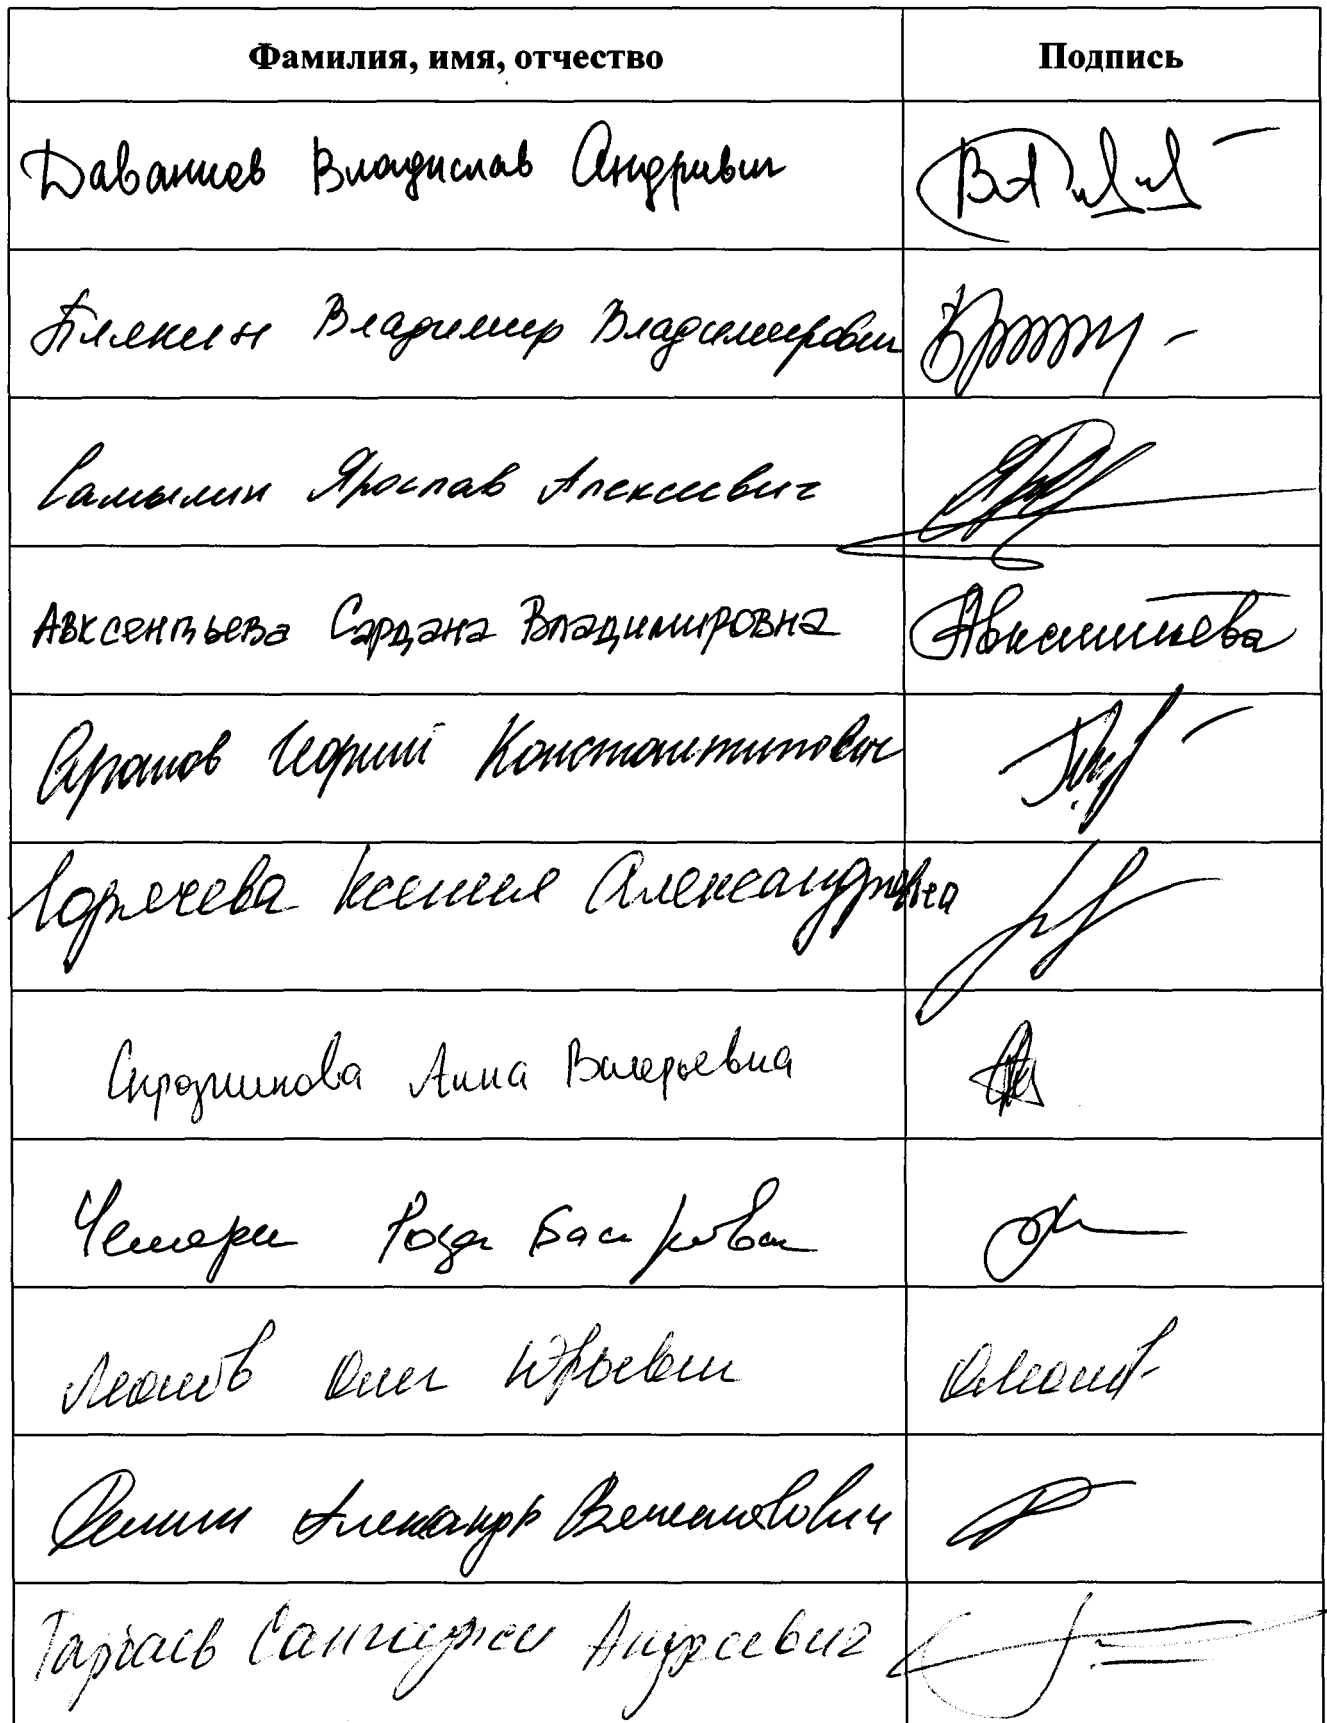 Фамилия, имя, отчество Подпись
Даванков Владислав Андреевич
Плякин Владимир Владимирович
Самылин Ярослав Алексеевич
Авксентьева Сардана Владимировна Авксентьева
Арапов Георгий Константинович
Горячева Ксения Александровна
Скрозникова Анна Валерьевна
Чемери Роза Басировна
Леонов Олег Юрьевич ОЛеонов
Демин Александр Вячеславович
Тарнаев Сангаджи Андреевич